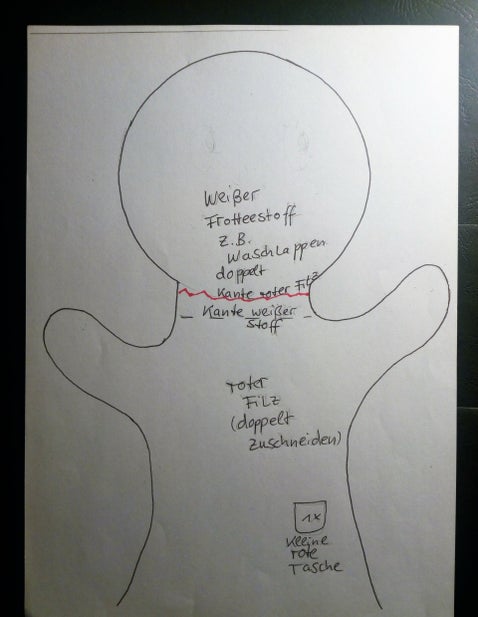 Weißer
Frotteestoff
z.B.
Waschlappen
doppelt
Kante roter Filz
Kante weißer
Stoff
roter
Filz
(doppelt
zuschneiden)
1x
Kleine
rote
Tasche